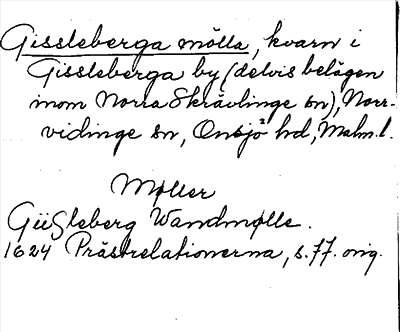 Gissleberga mölla, kvarn i
Gissleberga by (delvis belägen
inom Norra Skrävlinge sn), Norr-
vidinge sn, Onsjö hd, Malm. l.
Møller
Giisleberg Wandmølle.
1624 Prästrelationerna, s. 77. orig.